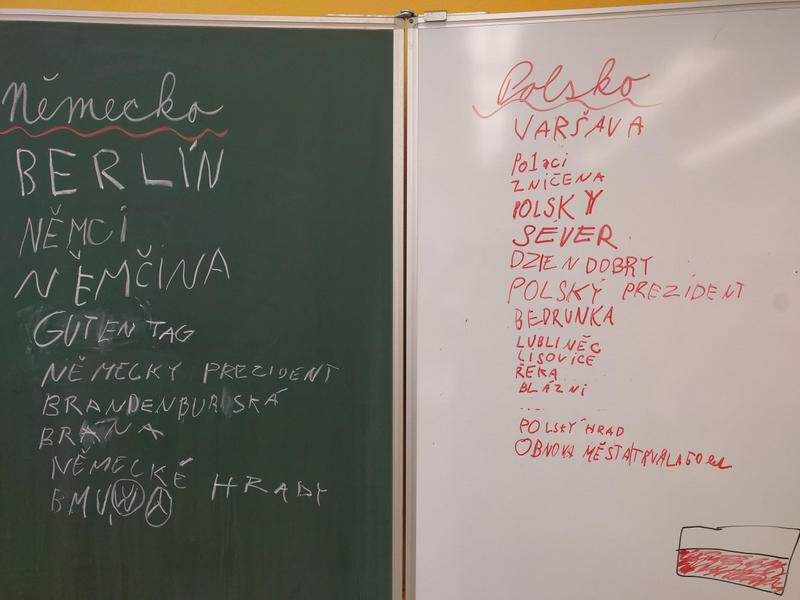 Německo
BERLÍN
NĚMCI
NĚMČINA
GUTEN TAG
NĚMECKY PREZIDENT
BRANDENBURSKÁ
BRÁNA
NĚMECKÉ HRADY
BMV, W
Polsko
VARŠAVA
Polaci
ZNIČENA
POLSKY
SEVER
DZIEN DOBRY
POLSKÝ PREZIDENT
BEDRUNKA
LUBLINĚC
LISOVICE
ŘEKA
BLÁZNI
....
POLSKÝ HRAD
OBNOVA MĚSTA TRVALA 50 let